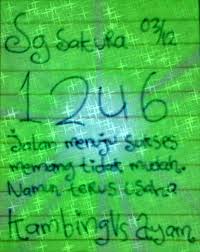 Sg Sakura 03/12
1246
Jalan menuju sukses
memang tidak mudah.
Namun terus usaha?
Kambing Vs Ayam